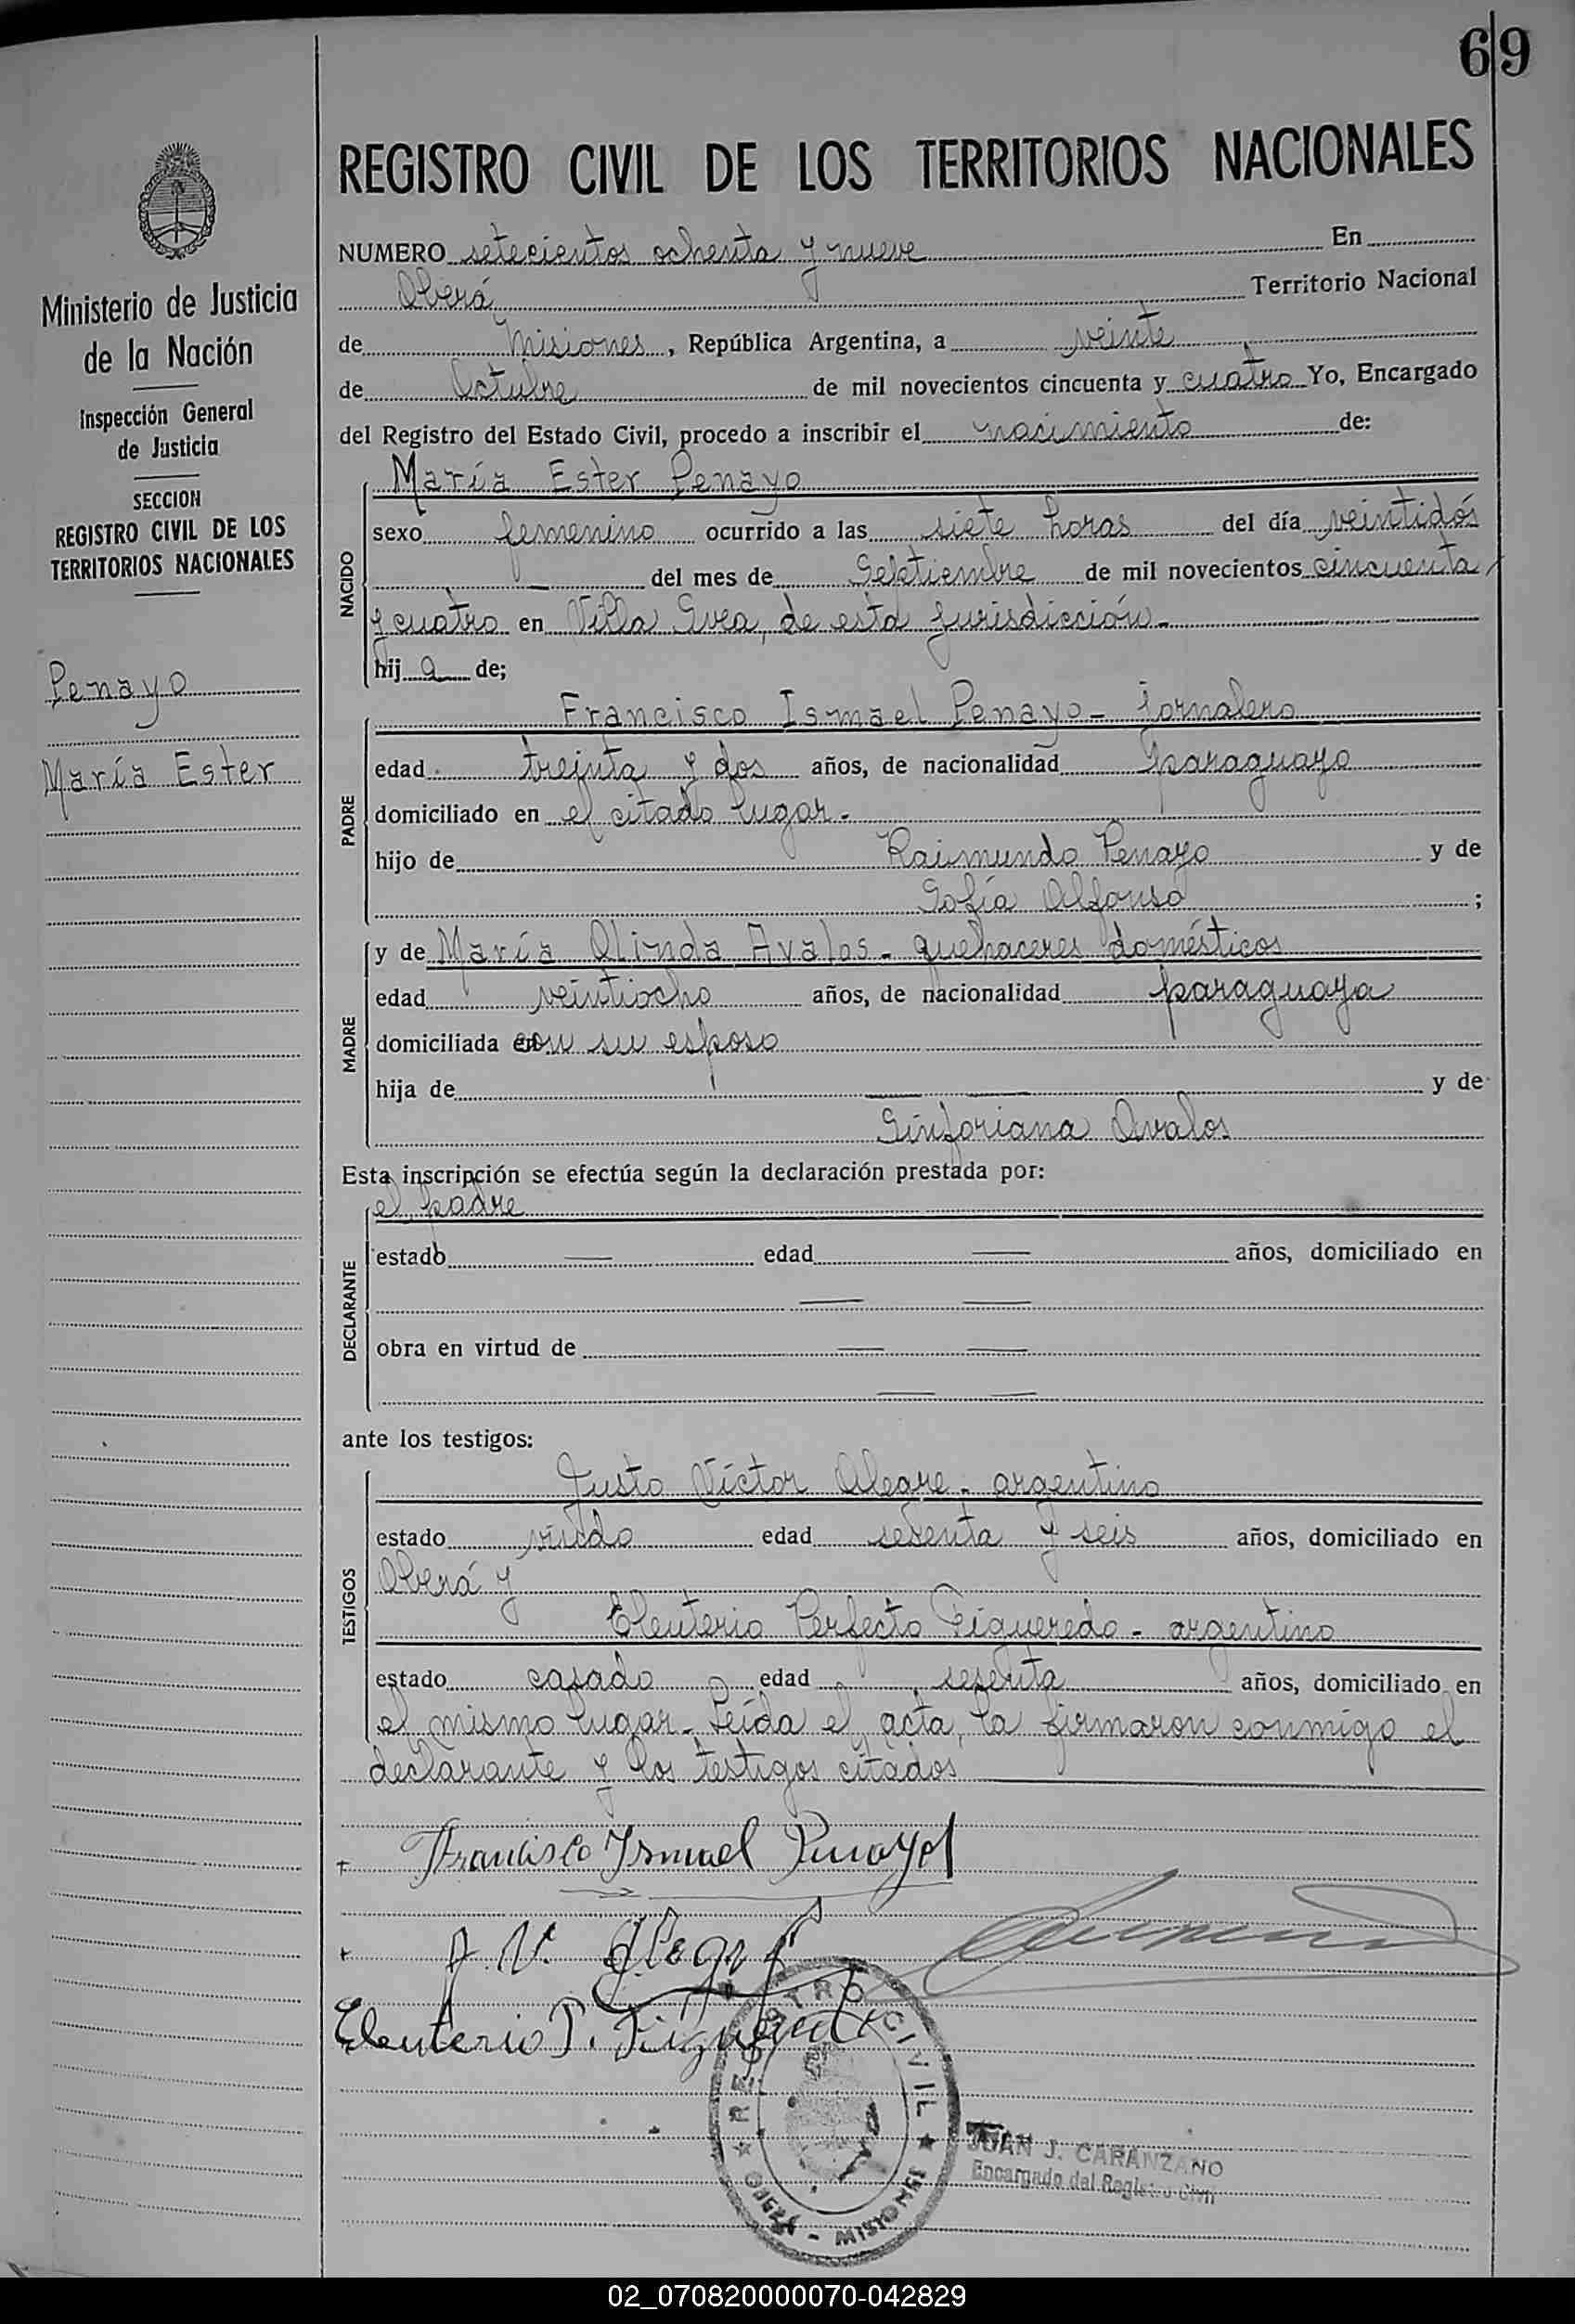 69
REGISTRO CIVIL DE LOS TERRITORIOS NACIONALES
Ministerio de Justicia
de la Nación
Inspección General
de Justicia
SECCION
REGISTRO CIVIL DE LOS
TERRITORIOS NACIONALES
Penayo
María Ester
NUMERO setecientos ochenta y nueve En
Oberá Territorio Nacional
de Misiones, República Argentina, a veinte
de Octubre de mil novecientos cincuenta y cuatro Yo, Encargado
del Registro del Estado Civil, procedo a inscribir el nacimiento de:
NACIDO
María Ester Penayo
sexo femenino ocurrido a las siete horas del día veintidós
— del mes de Septiembre de mil novecientos cincuenta
y cuatro en Villa Svea, de esta jurisdicción-
hij a de;
PADRE
Francisco Ismael Penayo- jornalero
edad treinta y dos años, de nacionalidad paraguayo
domiciliado en el citado lugar-
hijo de Raimundo Penayo y de
Sofía Alfonso ;
MADRE
y de María Olinda Avalos- quehaceres domésticos
edad veintiocho años, de nacionalidad paraguaya
domiciliada con su esposo
hija de — — y de
Sinforiana Avalos
Esta inscripción se efectúa según la declaración prestada por:
DECLARANTE
el padre
estado — edad — años, domiciliado en
— —
obra en virtud de — —
— —
ante los testigos:
TESTIGOS
Justo Víctor Alegre- argentino
estado viudo edad sesenta y seis años, domiciliado en
Oberá y
Eleuterio Perfecto Figueredo- argentino
estado casado edad sesenta años, domiciliado en
el mismo lugar- Leída el acta, la firmaron conmigo el
declarante y los testigos citados
Francisco Ismael Penayo
J. V. Alegre
Eleuterio P. Figueredo
REGISTRO CIVIL
OBERÁ - MISIONES
JUAN J. CARANZANO
Encargado del Registro Civil
02_070820000070-042829